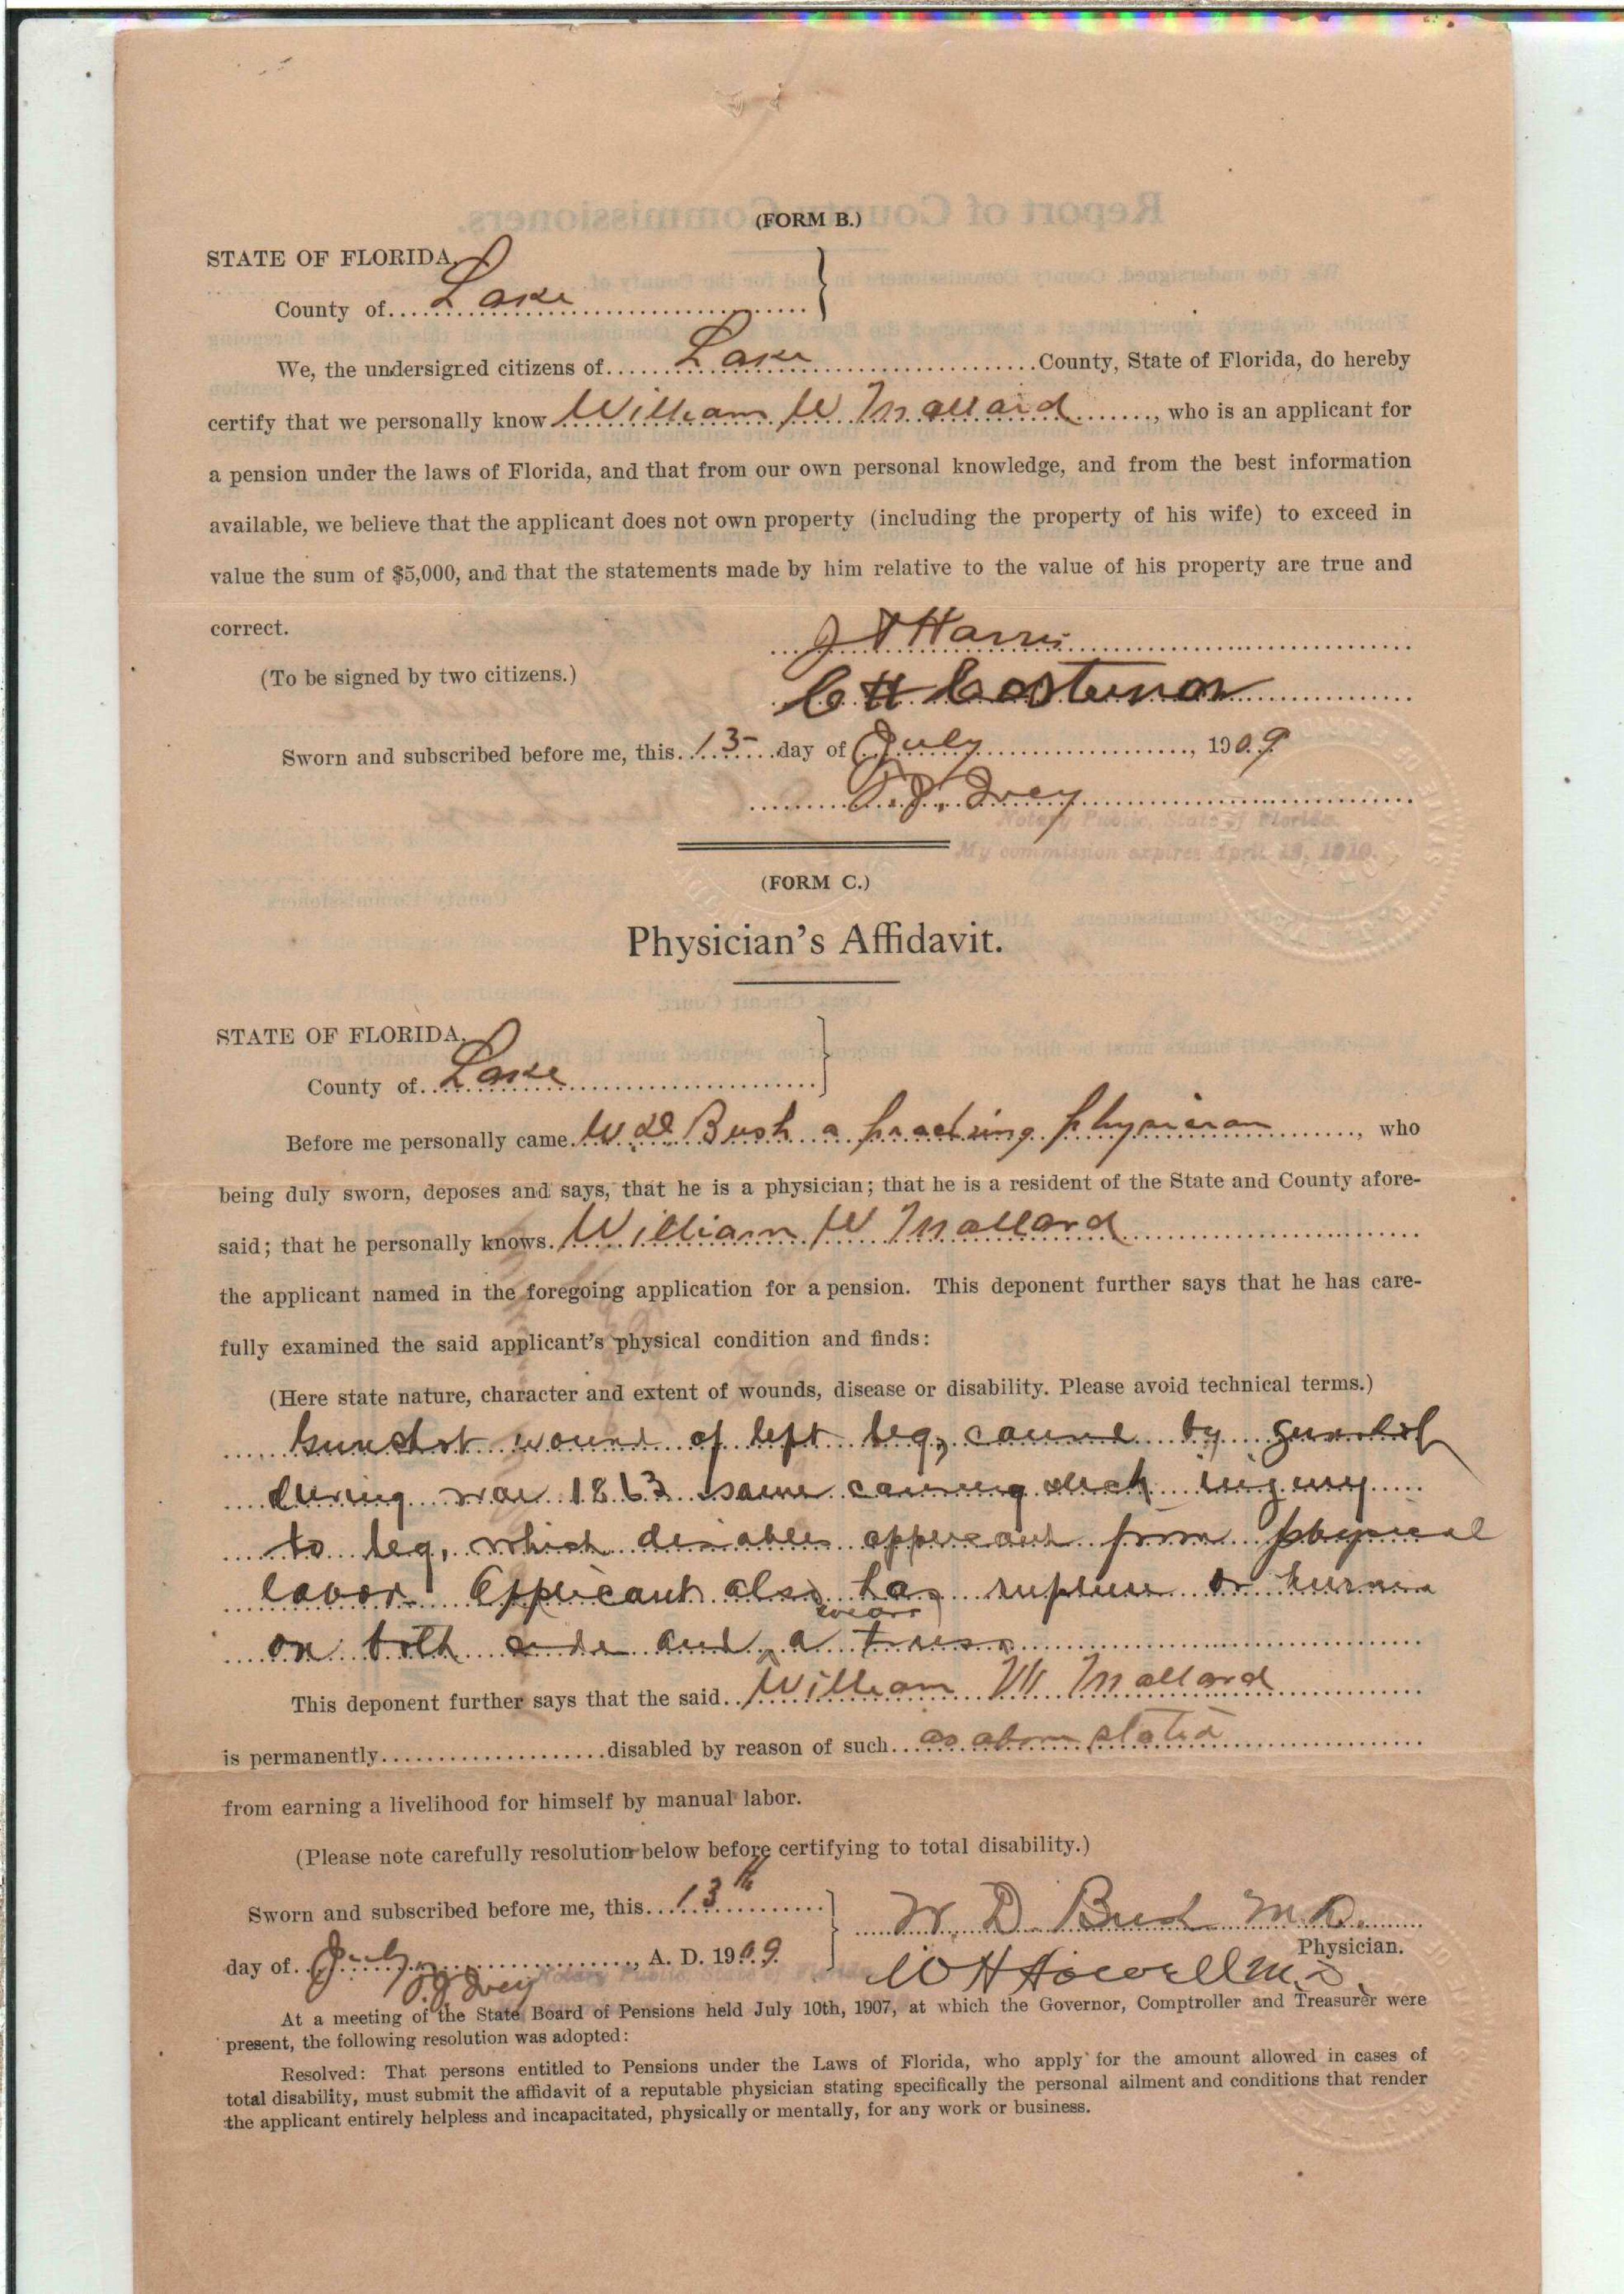 (FORM B.)
STATE OF FLORIDA,
County of Lake
We, the undersigned citizens of Lake County, State of Florida, do hereby
certify that we personally know William W Mallard, who is an applicant for
a pension under the laws of Florida, and that from our own personal knowledge, and from the best information
available, we believe that the applicant does not own property (including the property of his wife) to exceed in
value the sum of $5,000, and that the statements made by him relative to the value of his property are true and
correct.
J T Harris
(To be signed by two citizens.)
C H
Sworn and subscribed before me, this 13 day of July, 1909
Ivey
Notary Public, State of Florida.
My commission expires April 19, 1910.
(FORM C.)
Physician's Affidavit.
STATE OF FLORIDA,
County of Lake
Before me personally came W. D Bush a practising physician, who
being duly sworn, deposes and says, that he is a physician; that he is a resident of the State and County afore-
said; that he personally knows William W Mallard
the applicant named in the foregoing application for a pension. This deponent further says that he has care-
fully examined the said applicant's physical condition and finds:
(Here state nature, character and extent of wounds, disease or disability. Please avoid technical terms.)
Gunshot wound of left leg, caused by gunshot
during war 1863 same causing such injury
to leg, which disables applicant from physical
labor. Applicant also has rupture or hernia
on both side and wears a truss
This deponent further says that the said William W Mallard
is permanently disabled by reason of such as above stated
from earning a livelihood for himself by manual labor.
(Please note carefully resolution below before certifying to total disability.)
Sworn and subscribed before me, this 13th
W. D. Bush M.D.
Physician.
day of July, A. D. 1909.
W H Howell M.D.
Ivey
Notary Public, State of Florida
At a meeting of the State Board of Pensions held July 10th, 1907, at which the Governor, Comptroller and Treasurer were
present, the following resolution was adopted:
Resolved: That persons entitled to Pensions under the Laws of Florida, who apply for the amount allowed in cases of
total disability, must submit the affidavit of a reputable physician stating specifically the personal ailment and conditions that render
the applicant entirely helpless and incapacitated, physically or mentally, for any work or business.